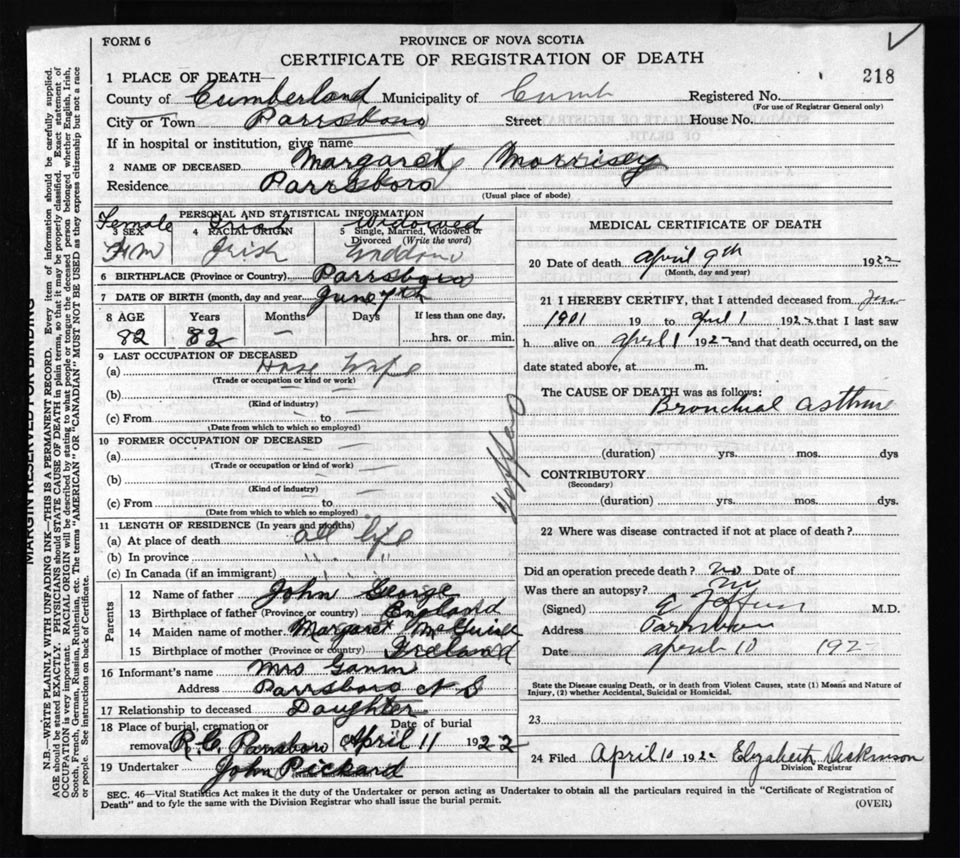 FORM 6
PROVINCE OF NOVA SCOTIA
CERTIFICATE OF REGISTRATION OF DEATH
218
1 PLACE OF DEATH—
County of Cumberland Municipality of Cumb Registered No.
(For use of Registrar General only)
City or Town Parrsboro Street House No.
If in hospital or institution, give name
2 NAME OF DECEASED Margaret Morrisey
Residence Parrsboro
(Usual place of abode)
PERSONAL AND STATISTICAL INFORMATION
Female Widowed
3 SEX 4 RACIAL ORIGIN 5 Single, Married, Widowed or Divorced (Write the word)
Irish
6 BIRTHPLACE (Province or Country) Parrsboro
7 DATE OF BIRTH (month, day and year) June 7th
8 AGE Years Months Days If less than one day,
82 82 — hrs. or min.
9 LAST OCCUPATION OF DECEASED
(a) House Wife
(Trade or occupation or kind or work)
(b)
(Kind of industry)
(c) From to
(Date from which to which so employed)
10 FORMER OCCUPATION OF DECEASED
(a)
(Trade or occupation or kind of work)
(b)
(Kind of industry)
(c) From to
(Date from which to which so employed)
11 LENGTH OF RESIDENCE (In years and months)
(a) At place of death all life
(b) In province " "
(c) In Canada (if an immigrant)
Parents
12 Name of father John George
13 Birthplace of father (Province or country) England
14 Maiden name of mother Margaret McGuirk
15 Birthplace of mother (Province or country) Ireland
16 Informant's name Mrs
Address Parrsboro N S
17 Relationship to deceased Daughter
18 Place of burial, cremation or removal R.C. Parrsboro Date of burial April 11 1922
19 Undertaker John Pickard
MEDICAL CERTIFICATE OF DEATH
20 Date of death April 9th 1922
(Month, day and year)
21 I HEREBY CERTIFY, that I attended deceased from
1901 19 to April 1 1922 that I last saw
h alive on April 1 1922 and that death occurred, on the
date stated above, at m.
The CAUSE OF DEATH was as follows:
Bronchial asthma
(duration) yrs. mos. dys
CONTRIBUTORY
(Secondary)
(duration) yrs. mos. dys.
22 Where was disease contracted if not at place of death?
Did an operation precede death? no Date of
Was there an autopsy? no
(Signed) M.D.
Address Parrsboro
Date April 10 192
State the Disease causing Death, or in death from Violent Causes, state (1) Means and Nature of
Injury, (2) whether Accidental, Suicidal or Homicidal.
23
24 Filed April 10 1922 Elizabeth Dickinson
Division Registrar
SEC. 46—Vital Statistics Act makes it the duty of the Undertaker or person acting as Undertaker to obtain all the particulars required in the "Certificate of Registration of
Death" and to fyle the same with the Division Registrar who shall issue the burial permit.
(OVER)
MARGIN RESERVED FOR BINDING
N.B.—WRITE PLAINLY WITH UNFADING INK—THIS IS A PERMANENT RECORD. Every item of information should be carefully supplied.
AGE should be stated EXACTLY. PHYSICIANS should STATE CAUSE OF DEATH in plain terms, so that it may be properly classified. Exact statement of
OCCUPATION is very important. RACIAL ORIGIN will be described by stating to what people or tongue the deceased person belonged whether English, Irish,
Scotch, French, German, Russian, Ruthenian, etc. The terms "AMERICAN" OR "CANADIAN" MUST NOT BE USED as they express citizenship but not a race
or people. See instructions on back of Certificate.